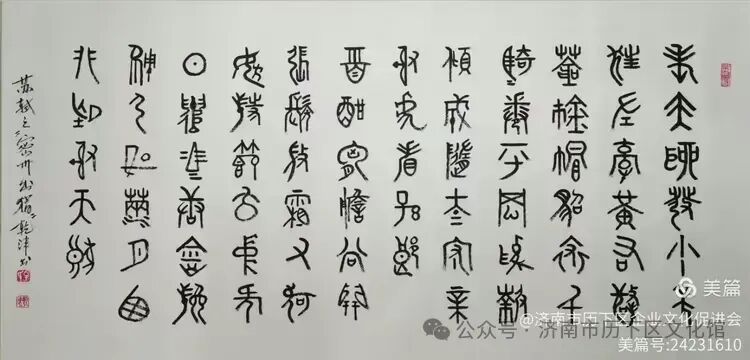 老夫聊發少年
狂左牽黃右擎
蒼錦帽貂裘千
騎卷平岡為報
傾城隨太守親
射虎看孫郎
酒酣胸膽尚開
張鬢微霜又何
妨持節雲中何
日遣馮唐會挽
雕弓如滿月西
北望射天狼
苏轼之密州出猎
美篇
@济南市历下区企业文化促进会
公众号·济南市历下区文化馆
美篇号:24231610